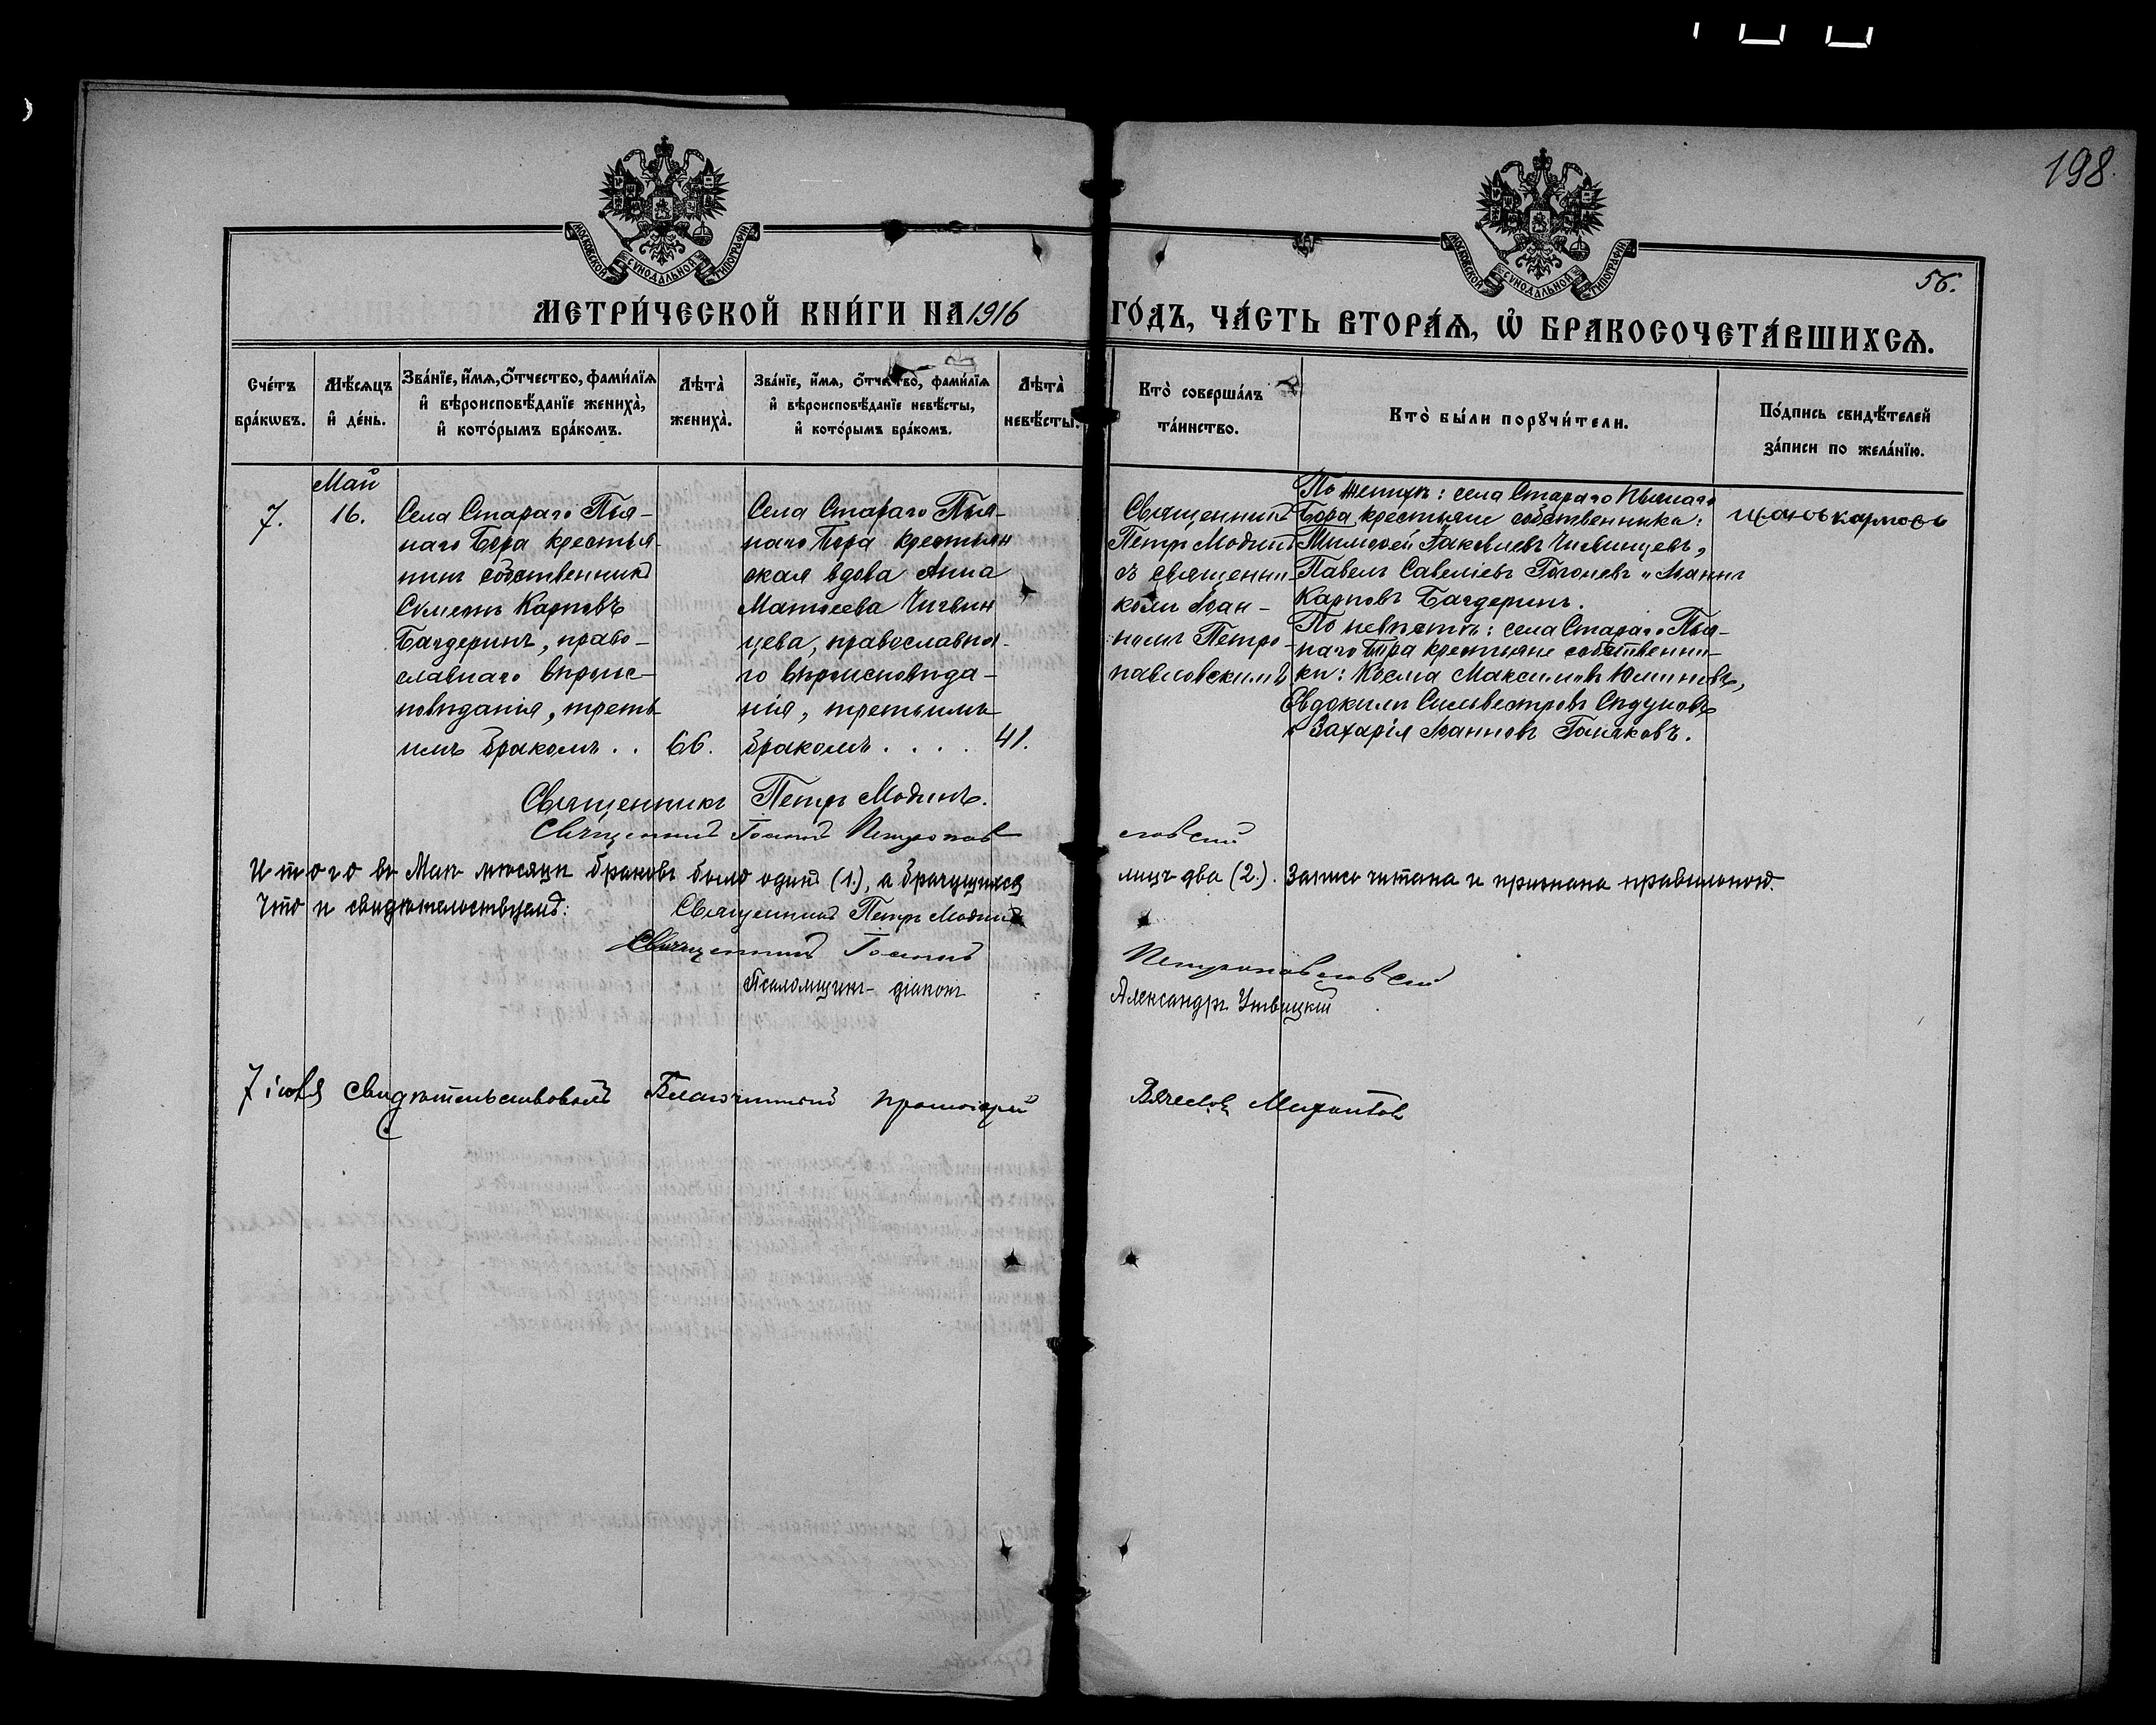 198.
МОСКОВСКОЙ СѴНОДАЛЬНОЙ ТИПОГРАФІИ
МОСКОВСКОЙ СѴНОДАЛЬНОЙ ТИПОГРАФІИ
56.
МЕТРИ́ЧЕСКОЙ КНИ́ГИ НА 1916 ГО́ДЪ, ЧА́СТЬ ВТОРА́Ѧ, Ѡ҆ БРАКОСОЧЕТА́ВШИХСѦ.
Сче́тъ
бра́кѡвъ.
Мѣ́сяцъ
и҆ де́нь.
Зва́нїе, и҆́мѧ, ѻ҆́тчество, фами́лїѧ
и҆ вѣроисповѣ́данїе жениха̀,
и҆ кото́рымъ бра́комъ.
Лѣта̀
жениха̀.
Зва́нїе, и҆́мѧ, ѻ҆́тчество, фами́лїѧ
и҆ вѣроисповѣ́данїе невѣ́сты,
и҆ кото́рымъ бра́комъ.
Лѣта̀
невѣ́сты.
Кто̀ соверша́лъ
та́инство.
Кто̀ бы́ли порꙋчи́тели.
По́дпись свидѣ́телей
за́писи по жела́нїю.
7.
Май
16.
Села Стараго Пья-
наго Бора крестья-
нинъ собственникъ
Симеонъ Карповъ
Бачдеринъ, право-
славнаго вѣроис-
повѣданія, треть-
имъ бракомъ . .
66.
Села Стараго Пья-
наго Бора крестьян
ская вдова Анна
Матѳеева Чигвин
цева, православна-
го вѣроисповѣда-
нія, третьимъ
бракомъ . . . .
41.
Священникъ
Петръ Модинъ
съ священни-
комъ Іоан-
номъ Петро-
павловскимъ
По женихѣ: села Стараго Пьянаго
Бора крестьяне собственники:
Тимоѳей Іаковлевъ Чигвинцевъ,
Павелъ Савеліевъ Гоголевъ и Іоаннъ
Карповъ Бачдеринъ.
По невѣстѣ: села Стараго Пья-
наго Бора крестьяне собственни-
ки: Косма Максимовъ Юминовъ,
Евдокимъ Сильвестровъ Сѣдуновъ
и Захарія Іоанновъ Голяковъ.
Священникъ Петръ Модинъ.
Священникъ Іоаннъ Петропавловскій
Итого въ Маѣ мѣсяцѣ браковъ было одинъ (1.), а брачущихся лицъ два (2.). Запись читана и признана правильною.
Что и свидѣтельствуемъ: Священникъ Петръ Модинъ
Священникъ Іоаннъ Петропавловскій
Псаломщикъ-діаконъ Александръ Утвицкій
7 іюля свидѣтельствовалъ Благочинный протоіерей